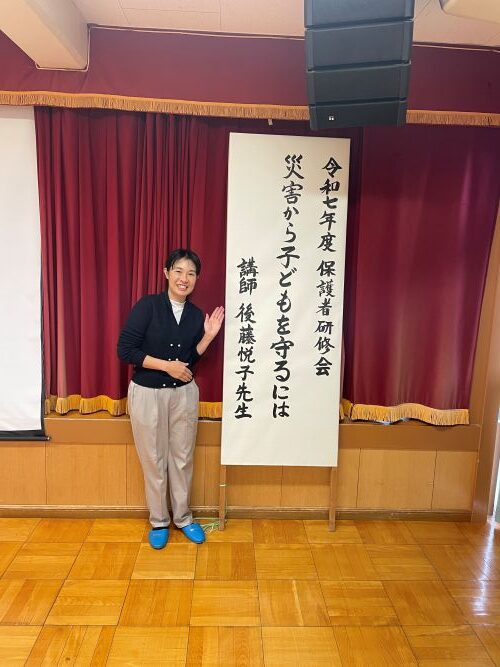 令和七年度 保護者研修会
災害から子どもを守るには
講師 後藤悦子先生